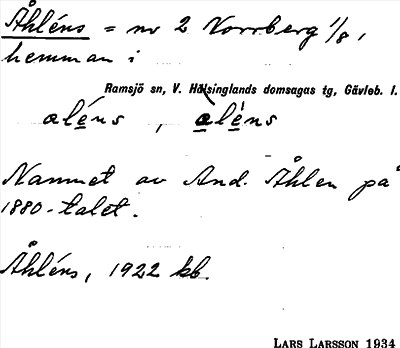 Åhléns = nr 2 Norrberg 1/8,
hemman i
Ramsjö sn, V. Hälsinglands domsagas tg, Gävleb. l.
aléns, aléns
Namnet av And. Åhlen på
1880-talet.
Åhléns, 1922 kb.
LARS LARSSON 1934